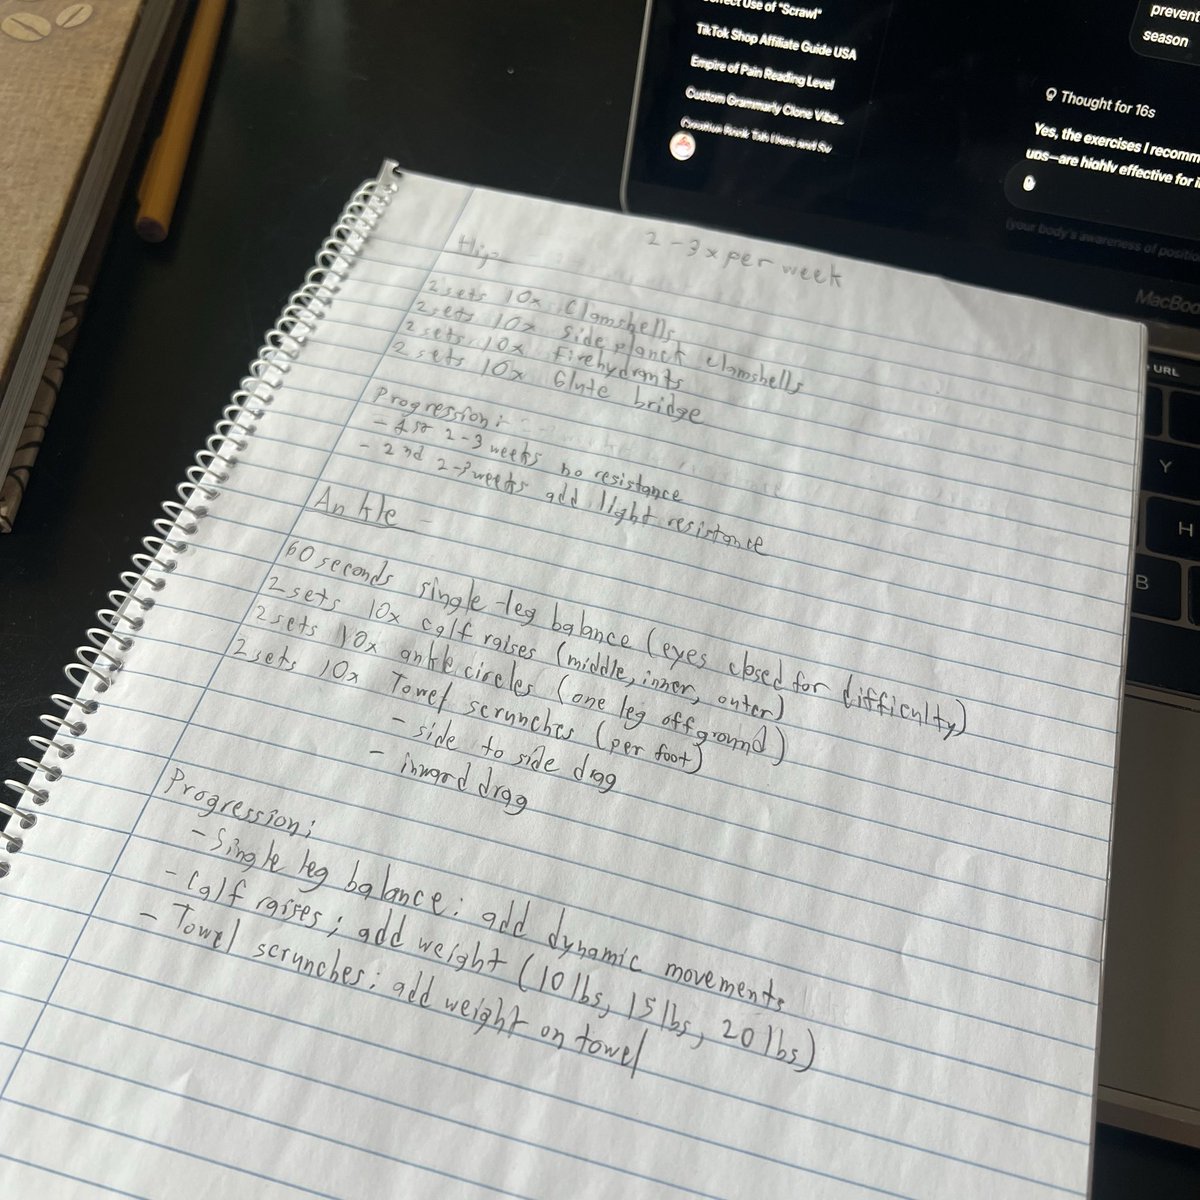 rrect Use of "Scrawl"
TikTok Shop Affiliate Guide USA
Empire of Pain Reading Level
Custom Grammarly Clone Vibe...
prevent
season
Thought for 16s
Yes, the exercises I recomm
ups—are highly effective for i
(your body's awareness of positio
MacBoo
URL
Y
H
B
2-3x per week
Hip
2 sets 10x Clamshells
2 sets 10x side planck clamshells
2 sets 10x firehydrants
2 sets 10x Glute bridge
Progression:
- 1st 2-3 weeks no resistance
- 2nd 2-3 weeks add light resistance
Ankle
60 seconds single-leg balance (eyes closed for difficulty)
2 sets 10x calf raises (middle, inner, outer)
2 sets 10x ankle circles (one leg off ground)
2 sets 10x Towel scrunches (per foot)
- side to side drag
- inward drag
Progression:
- Single leg balance: add dynamic movements
- Calf raises; add weight (10 lbs, 15 lbs, 20 lbs)
- Towel scrunches: add weight on towel